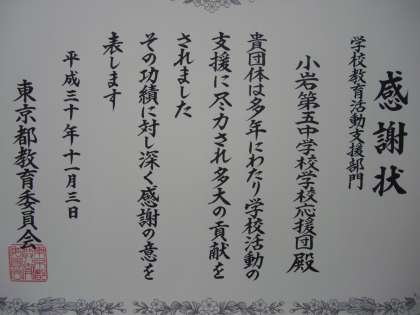 感謝状
学校教育活動支援部門
小岩第五中学校学校応援団殿
貴団体は多年にわたり学校活動の
支援に尽力され多大の貢献を
されました
その功績に対し深く感謝の意を
表します
平成三十年十一月三日
東京都教育委員会